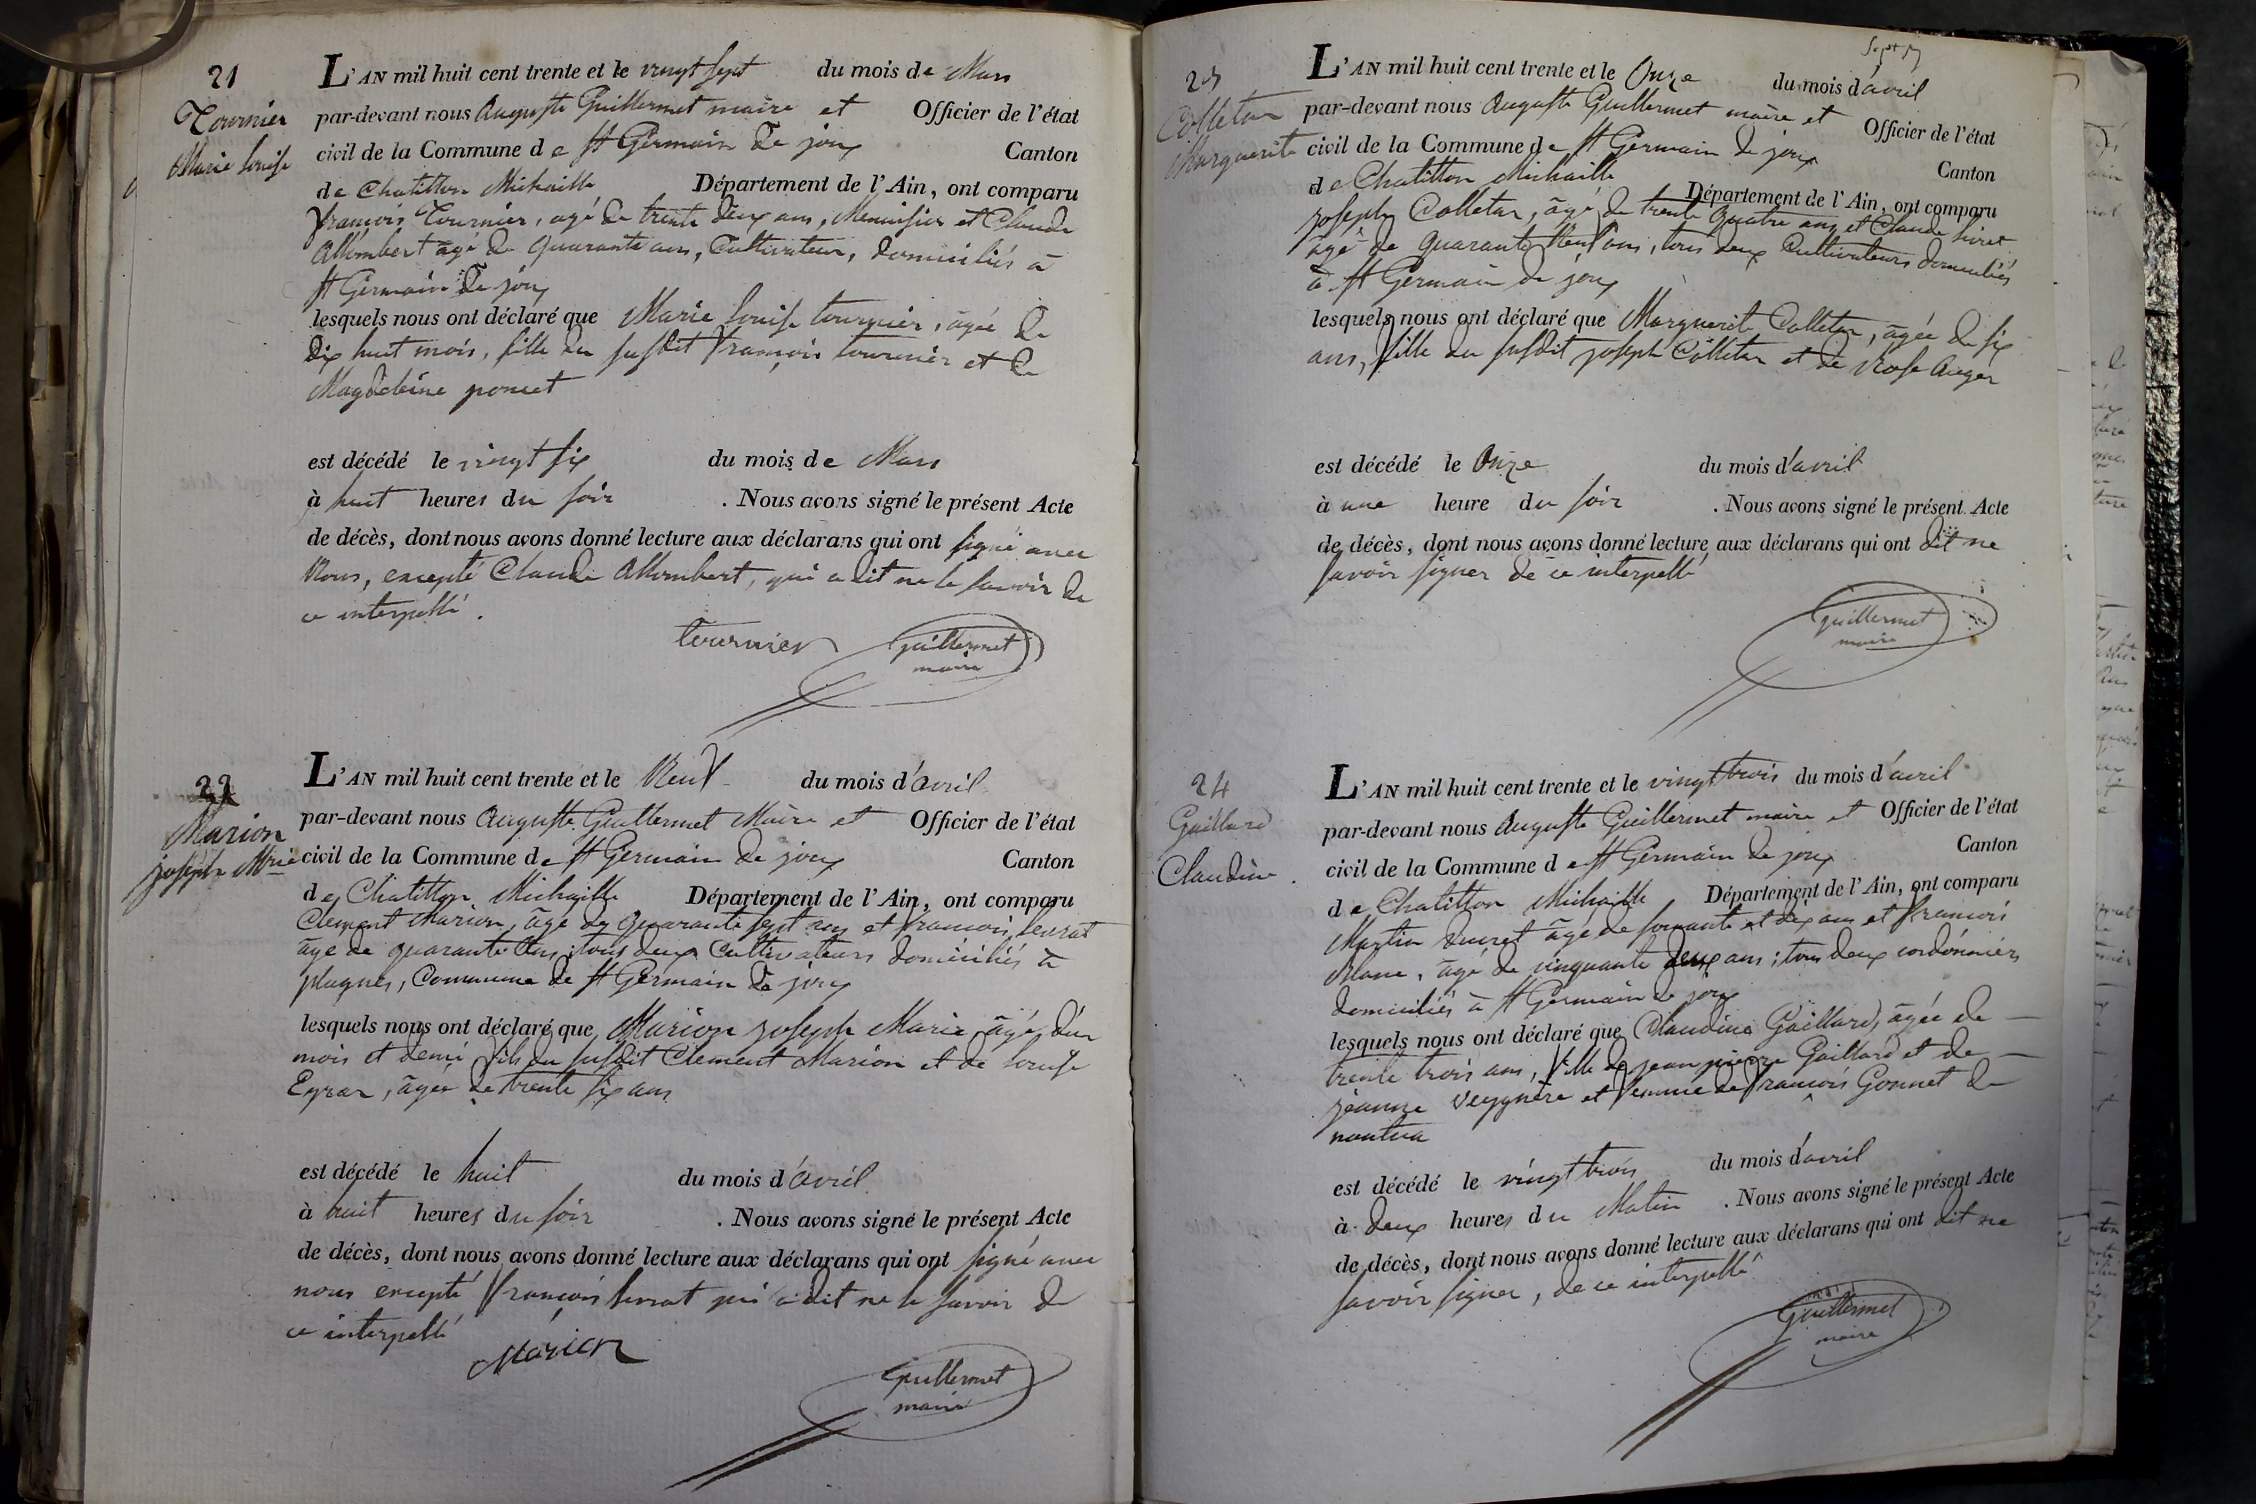 21
Tournier
Marie Louise
L'AN mil huit cent trente et le vingt sept du mois de Mars
par-devant nous Auguste Guillermet maire et Officier de l'état
civil de la Commune de St Germain de joux Canton
de Chatillon Michaille Département de l'Ain, ont comparu
françois Tournier, agé de trente deux ans, Menuisier et Claude
Allombert agé de quarante ans, Cultivateur, domiciliés à
St Germain de joux
lesquels nous ont déclaré que Marie Louise tournier, agée de
dix huit mois, fille du susdit françois tournier et de
Magdeleine poncet
est décédé le vingt six du mois de Mars
à huit heures du soir . Nous avons signé le présent Acte
de décès, dont nous avons donné lecture aux déclarans qui ont signé avec
Nous, excepté Claude Allombert, qui a dit ne le savoir de
ce interpellé.
tournier Guillermet
maire
22
Marion
joseph Mrie
L'AN mil huit cent trente et le Neuf du mois d'avril
par-devant nous Auguste Guillermet Maire et Officier de l'état
civil de la Commune de St Germain de joux Canton
de Chatillon Michaille Département de l'Ain, ont comparu
Clement Marion, âgé de quarante sept ans et françois
âgé de quarante ans, tous deux Cultivateurs domiciliés à
plagnes, Commune de St Germain de joux
lesquels nous ont déclaré que Marion joseph Marie âgé d'un
mois et demi fils du susdit Clement Marion et de Louise
Eyrar, âgée de trente six ans
est décédé le huit du mois d'avril
à huit heures du soir . Nous avons signé le présent Acte
de décès, dont nous avons donné lecture aux déclarans qui ont signé avec
nous excepté françois qui a dit ne le savoir de
ce interpellé
Marion
Guillermet
maire
23
Colletar
Marguerite
L'AN mil huit cent trente et le Onze du mois d'avril
par-devant nous Auguste Guillermet maire et Officier de l'état
civil de la Commune de St Germain de joux Canton
de Chatillon Michaille Département de l'Ain, ont comparu
joseph Colletar, âgé de trente quatre ans et Claude
âgé de quarante Neuf ans, tous deux Cultivateurs domiciliés
à St Germain de joux
lesquels nous ont déclaré que Marguerite Colletar, agée de six
ans, fille du susdit joseph Colletar et de Rose Auger
est décédé le Onze du mois d'avril
à une heure du soir . Nous avons signé le présent Acte
de décès, dont nous avons donné lecture aux déclarans qui ont dit ne
savoir signer de ce interpellé
Guillermet
maire
24
Gaillard
Claudine.
L'AN mil huit cent trente et le vingt trois du mois d'avril
par-devant nous Auguste Guillermet maire et Officier de l'état
civil de la Commune de St Germain de joux Canton
de Chatillon Michaille Département de l'Ain, ont comparu
Martin Ducret âgé de soixante et dix ans et françois
Blanc, âgé de cinquante deux ans; tous deux cordonniers
domiciliés à St Germain de joux
lesquels nous ont déclaré que Claudine Gaillard, âgée de
trente trois ans, fille de jean pierre Gaillard et de
jeanne et femme de françois Gonnet de
nantua
est décédé le vingt trois du mois d'avril
à deux heures du Matin . Nous avons signé le présent Acte
de décès, dont nous avons donné lecture aux déclarans qui ont dit ne
savoir signer, de ce interpellé
Guillermet
maire